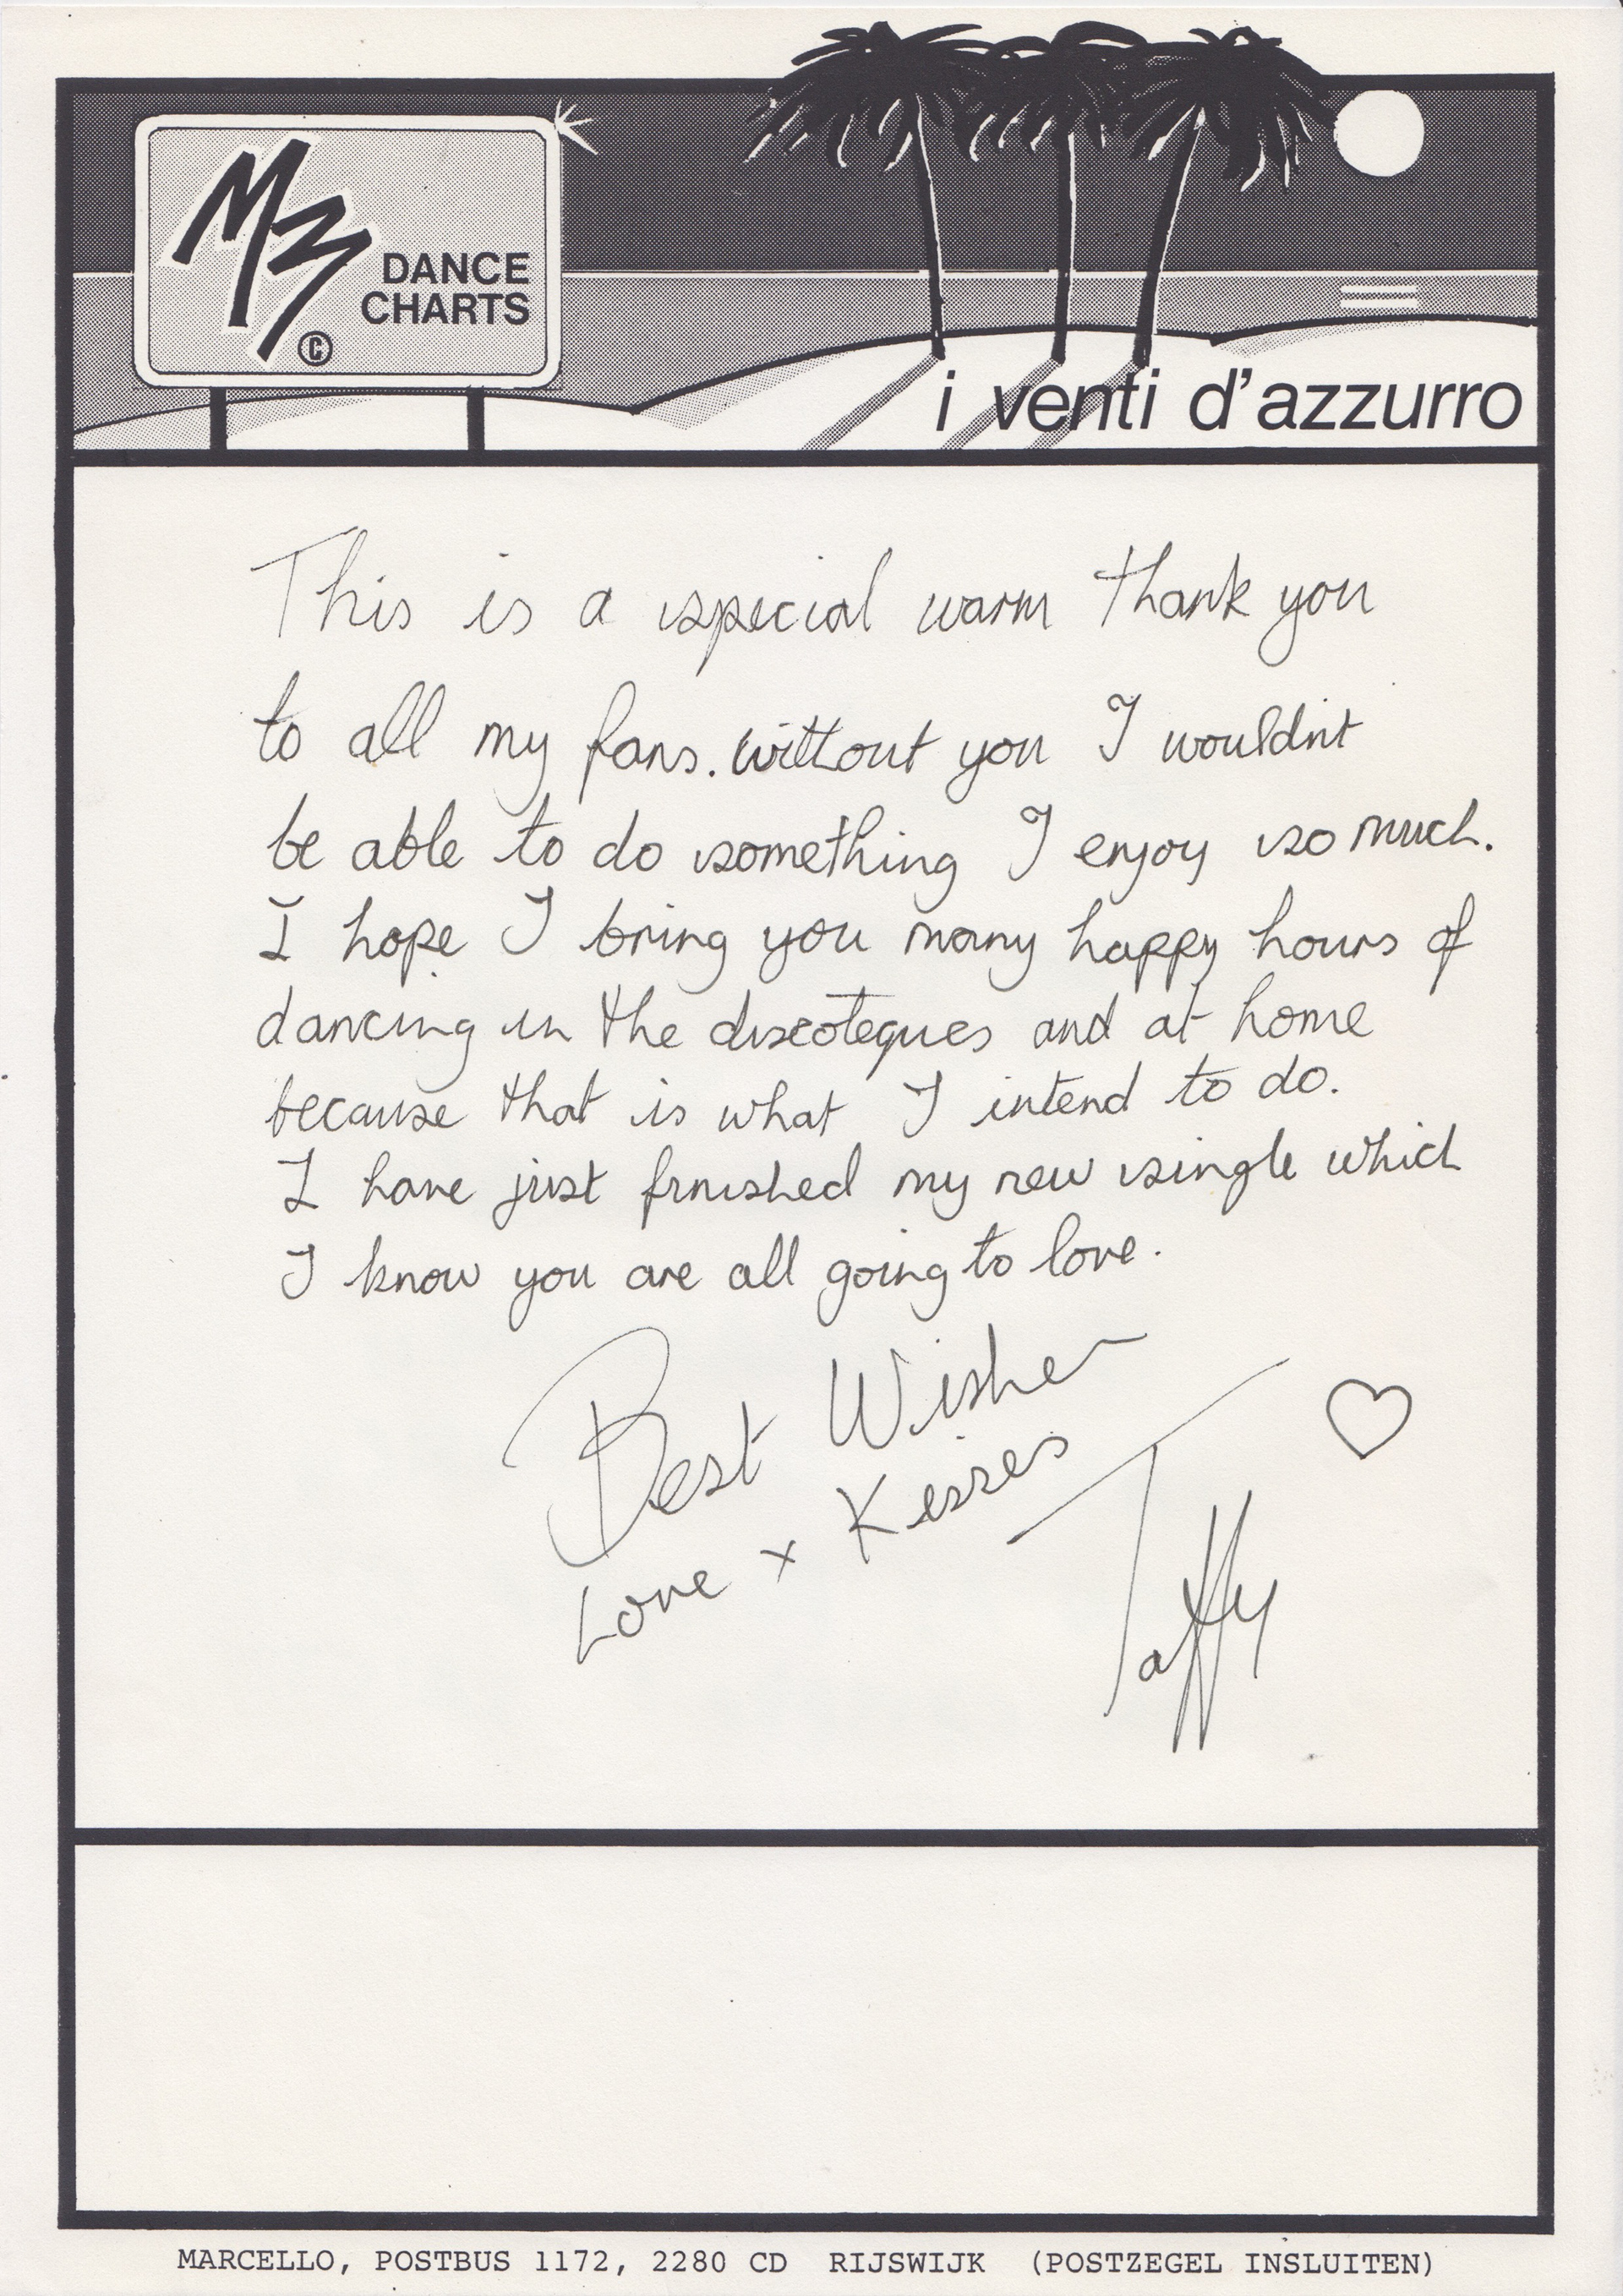 M3
DANCE
CHARTS
©
i venti d'azzurro
This is a special warm thank you
to all my fans. without you I wouldn't
be able to do something I enjoy so much.
I hope I bring you many happy hours of
dancing in the discoteques and at home
because that is what I intend to do.
I have just finished my new single which
I know you are all going to love.
Best Wishes
Love x Kisses
Taffy
MARCELLO, POSTBUS 1172, 2280 CD RIJSWIJK (POSTZEGEL INSLUITEN)